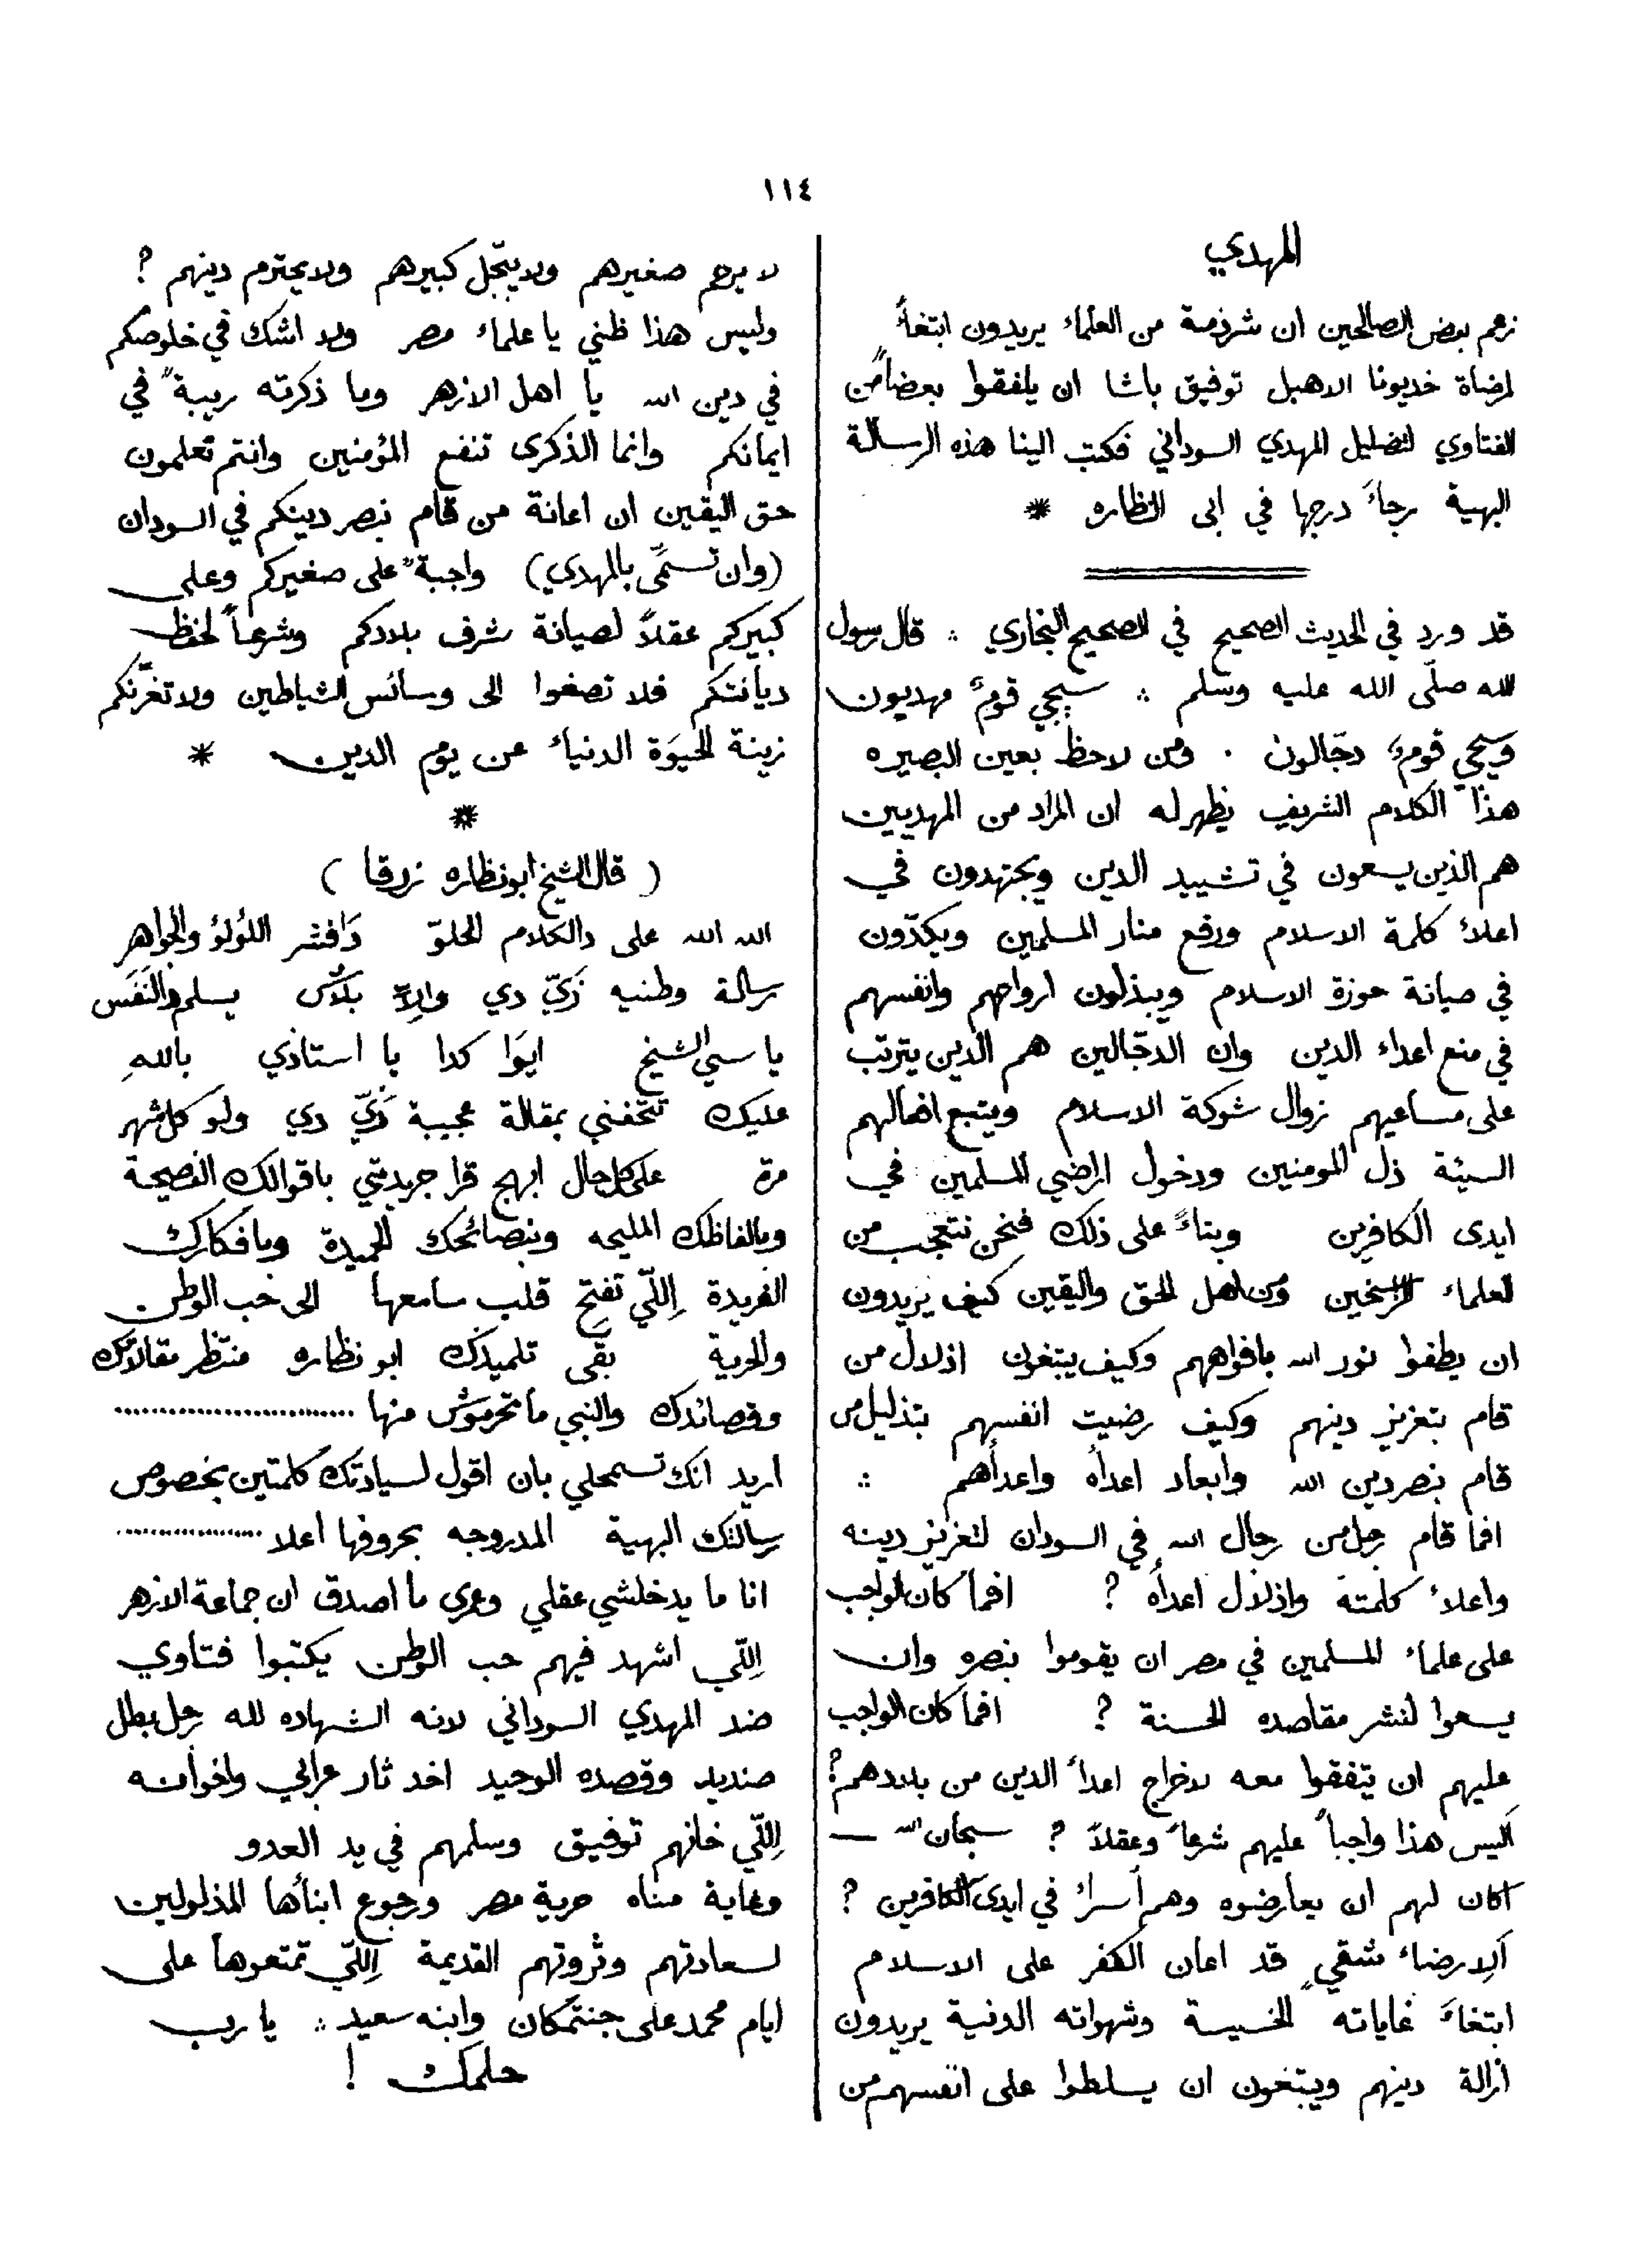 ١١٤
المهدي
زعم بعض الصالحين ان شرذمة من العلماء يريدون ابتغاءً
لمرضاة خديونا الاهبل توفيق باشا ان يلفقوا بعضاً من
الفتاوي لتضليل المهدي السوداني فكتب الينا هذه الرسالة
البهية رجاءَ درجها في ابى النظاره *
قد ورد في الحديث الصحيح في الصحيح البخاري ؞ قال رسول
الله صلّى الله عليه وسلم ؞ سيجي قومٌ مهديون
وسيجي قومٌ دجّالون . ومن لاحظ بعين البصيره
هذا الكلام الشريف يظهر له ان المراد من المهديين
هم الذين يسعون في تشييد الدين ويجتهدون في
اعلاء كلمة الاسلام ورفع منار المسلمين ويكدّون
في صيانة حوزة الاسلام ويبذلون ارواحهم وانفسهم
في منع اعداء الدين وان الدجّالين هم الذين يترتب
على مساعيهم زوال شوكة الاسلام ويتبع افعالهم
السيئة ذل المومنين ودخول اراضي المسلمين في
ايدى الكافرين وبناءً على ذلك فنحن نتعجب من
لعلماء الراسخين ومن اهل الحق واليقين كيف يريدون
ان يطفوا نور الله بافواههم وكيف يبتغون اذلال من
قام بتعزيز دينهم وكيف رضيت انفسهم بتذليل من
قام بنصر دين الله وابعاد اعداه واعداهم ؞
افما قام رجل من رجال الله في السودان لتعزيز دينه
واعلاء كلمته واذلال اعداه ؟ افما كان الواجب
على علماء المسلمين في مصر ان يقوموا بنصره وان
يسعوا لنشر مقاصده الحسنة ؟ افما كان الواجب
عليهم ان يتفقوا معه لاخراج اعداء الدين من بلادهم ؟
أليس هذا واجباً عليهم شرعاً وعقلاً ؟ سبحان الله —
اكان لهم ان يعارضوه وهم أسراء في ايدى الكافرين ؟
ألِارضاء شقيٍ قد اعان الكفر على الاسلام
ابتغاءَ غاياته الخسيسة وشهواته الدنية يريدون
ازالة دينهم ويبتغون ان يسلطوا على انفسهم من
لا يرحم صغيرهم ولا يبّجل كبيرهم ولا يحترم دينهم ؟
وليس هذا ظني يا علماء مصر ولا اشك في خلوصكم
في دين الله يا اهل الازهر وما ذكرته ريبةً في
ايمانكم وانما الذكرى تنفع المؤمنين وانتم تعلمون
حق اليقين ان اعانة من قام بنصر دينكم في السودان
(وان تسمّى بالمهدي) واجبةٌ على صغيركم وعلى
كبيركم عقلاً لصيانة شرف بلادكم وشرعاً لحفظ
ديانتكم فلا تصغوا الى وسائس الشياطين ولا تغرّنكم
زينة الحيَوة الدنياء عن يوم الدين *
*
( قال الشيخ ابو نظاره زرقا )
الله الله على دالكلام الحلوّ دَافشر اللؤلؤ والجواهر
رسالة وطنيه زَيّ دي والِاّ بلاش يسلم دالنَفَس
يا سي الشيخ ايوَا كدا يا استاذي باللهِ
عليك تتحّفني بمقالة عجيبة زَيّ دي ولو كل شهر
مرة على كل حال ابهج قرا جريدتي باقوالك الفصيحة
وبالفاظك المليحه وبنصائحك الحميدة وبافكارك
الفريدة اِللّي تفتح قلب سامعها الى حب الوطن
والحرية بقَى تلميذك ابو نظاره منتّظر مقالاتك
وقصائدك والنبي ما تحرموش منها ..........................
اريد انك تسمحلي بان اقول لسيادتك كلمتين بخصوص
رسالتك البهية المدروجه بحروفها اعلا ................
انا ما يدخلشي عقلي وعمري ما اصدق ان جماعة الازهر
اِللّي اشهد فيهم حب الوطن يكتبوا فتاوي
ضد المهدي السوداني لانه الشهاده لله رجل بطل
صنديد وقصده الوحيد اخد ثار عرابي واخوانه
اللّي خانهم توفيق وسلمهم في يد العدو
وغاية مناه حرية مصر ورجوع ابنأها المذلولين
لسعادتهم وثروتهم القديمة اِللّي تمتعوها على
ايام محمد على جنتمكان وابنه سعيد ؞ يا رب
حلمك !